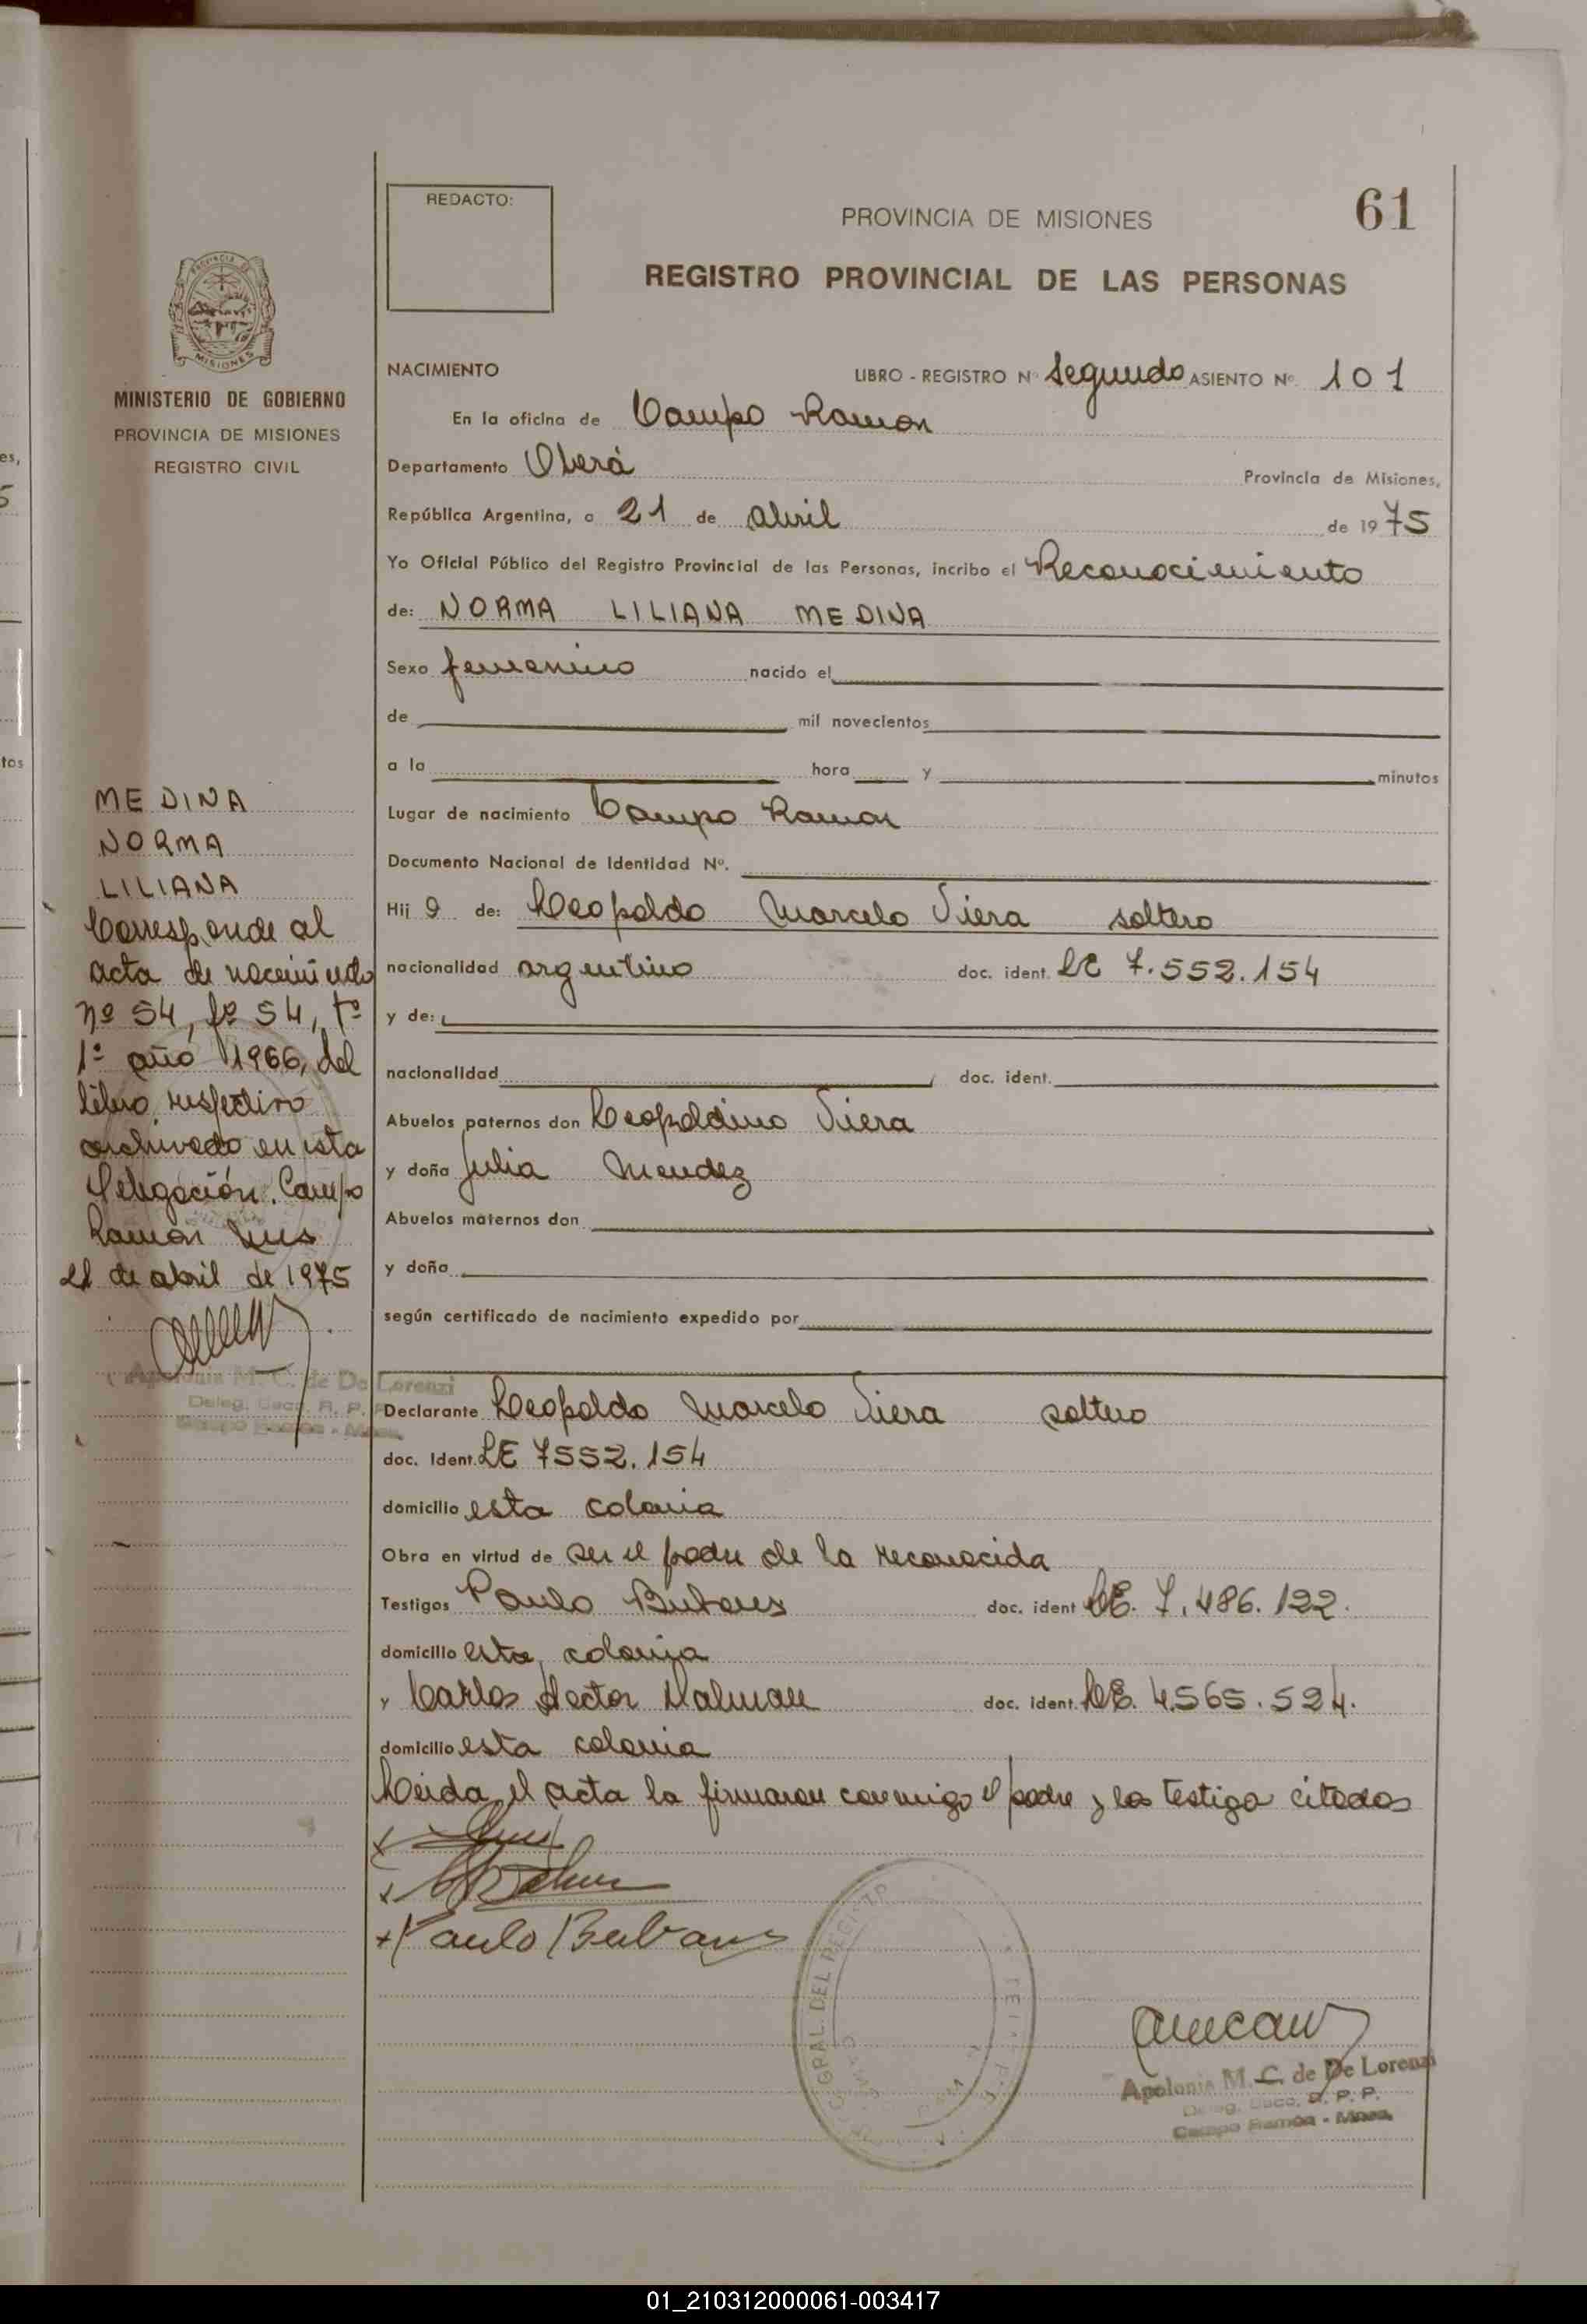 REDACTO:
PROVINCIA DE MISIONES
61
REGISTRO PROVINCIAL DE LAS PERSONAS
PROVINCIA DE
MISIONES
MINISTERIO DE GOBIERNO
PROVINCIA DE MISIONES
REGISTRO CIVIL
NACIMIENTO
LIBRO - REGISTRO Nº Segundo ASIENTO Nº 101
En la oficina de Campo Ramon
Departamento Oberá Provincia de Misiones,
República Argentina, a 21 de abril de 1975
Yo Oficial Público del Registro Provincial de las Personas, incribo el Reconocimiento
de: NORMA LILIANA MEDINA
Sexo femenino nacido el
de mil novecientos
a la hora y minutos
Lugar de nacimiento Campo Ramon
Documento Nacional de Identidad Nº.
Hij a de: Leopoldo Marcelo Viera soltero
nacionalidad argentino doc. ident. LE 7.552.154
y de:
nacionalidad doc. ident.
Abuelos paternos don Leopoldino Viera
y doña Julia Mendez
Abuelos maternos don
y doña
según certificado de nacimiento expedido por
MEDINA
NORMA
LILIANA
Corresponde al
acta de nacimiento
nº 54, fº 54, tº
1º año 1966, del
libro respectivo
archivado en esta
Delegación. Campo
Ramón Mnes
21 de abril de 1975
Apolonia M. C. de De Lorenzi
Deleg. R. P. P.
Campo Ramón - Mnes.
Declarante Leopoldo Marcelo Viera soltero
doc. Ident. LE 7552.154
domicilio esta colonia
Obra en virtud de ser el padre de la reconocida
Testigos Paulo doc. ident LE. 7.486.122.
domicilio esta colonia
y Carlos Hector Dalmau doc. ident. LE. 4.565.524.
domicilio esta colonia
Leida el acta la firmaron conmigo el padre y los testigo citados
x
x
x Paulo
Apolonia M. C. de De Lorenzi
Deleg. R. P. P.
Campo Ramón - Mnes.
01_210312000061-003417